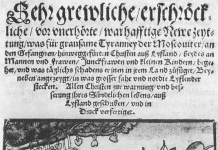 Sehr grewliche / erschröck-
liche / vor vnerhörte / warhafftige Newe zeyt-
tung / was für grausame Tyranney der Moscouiter / an
den Gefangnen / hinweggefürten Christen auß Lyfland / beydes an
Mannen vnd Frawen / Junckfrawen vnd kleinen Kindern / bege-
het / vnd was täglichs schadens er jnen in jrem Land zufüget / Bey-
neben angezeygt / in was grosser fahr vnd nodte die Lyfflender
stecken. Allen Christen zur warnung / vnd bes-
serung jhres Sündtlichen lebens / auß
Lyfland geschriben / vnd in
Druck verfertiget.